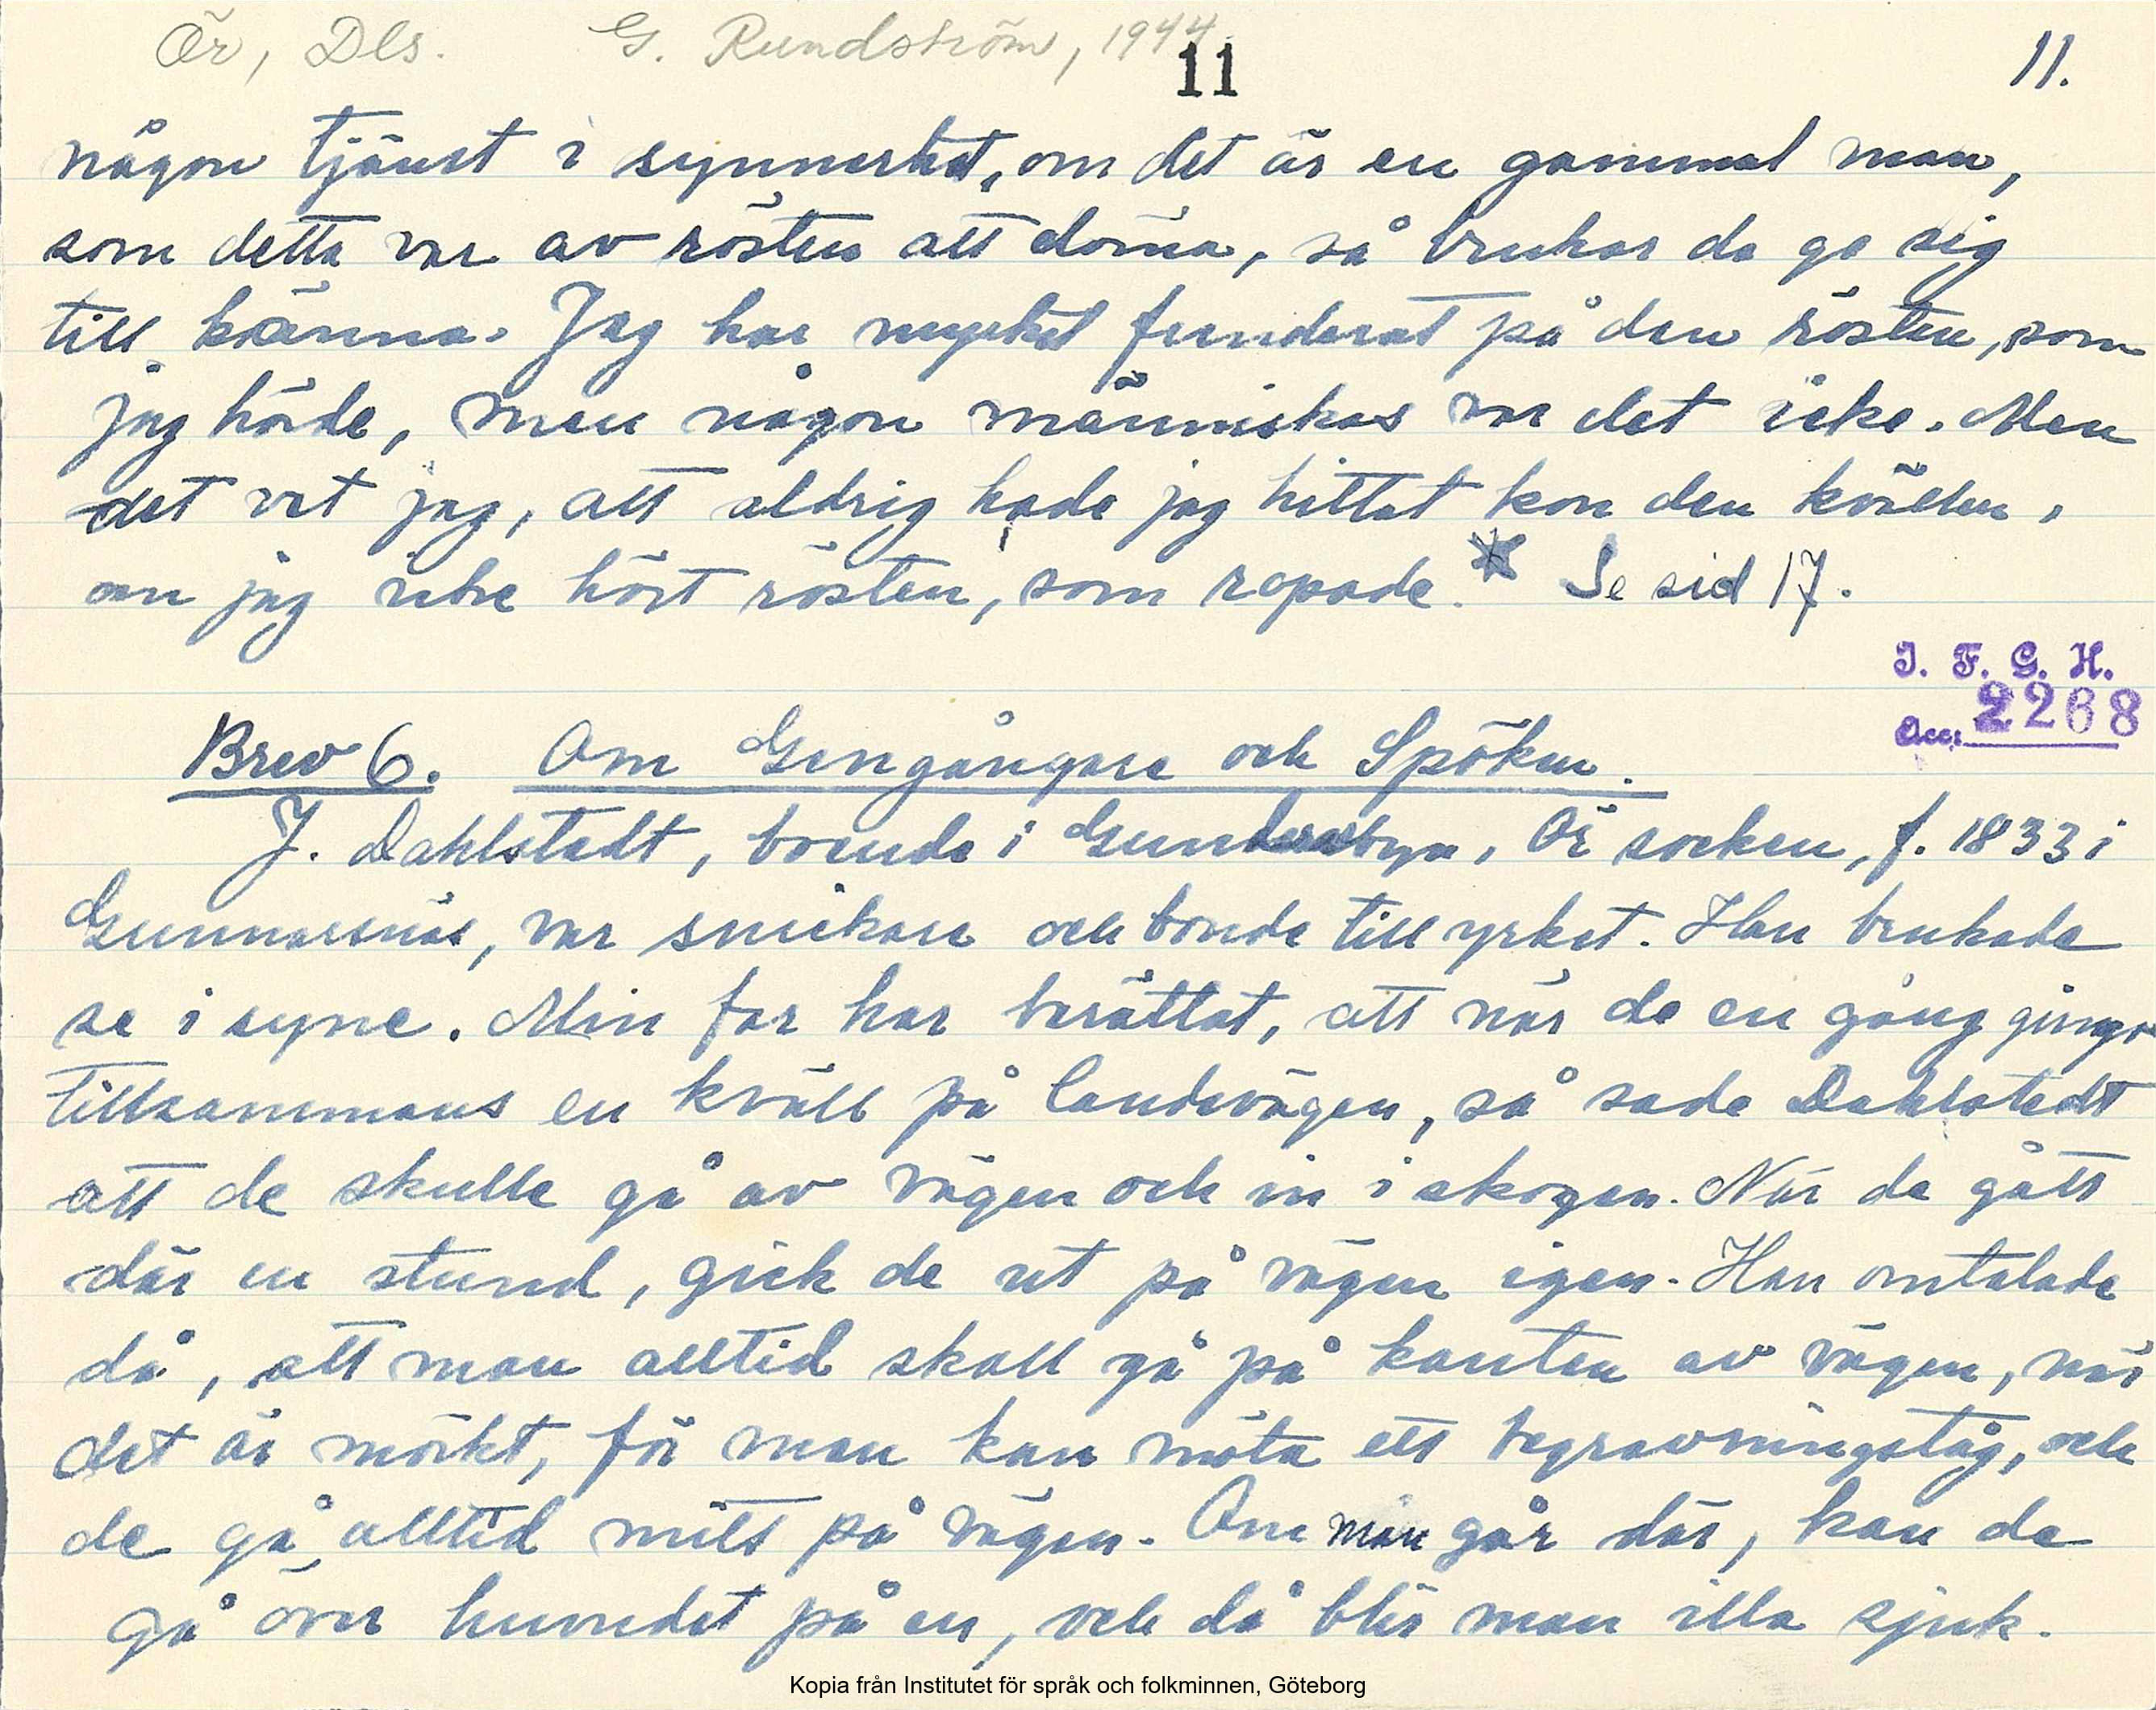 Ör, Dls. G. Rundström, 1944
11 11.
någon tjänst i synnerhet, om det är en gammal man,
som detta var av rösten att döma, så brukar de ge sig
till känna. Jag har mycket funderat på den rösten, som
jag hörde, men någon människas var det icke. Men
det vet jag, att aldrig hade jag hittat kon den kvällen,
om jag icke hört rösten, som ropade.* Se sid 17.
I. F. G. H.
Acc. 2268
Brev 6. Om Gengångare och Spöken.
J. Dahlstedt, boende i Ör socken, f. 1833 i
Gunnarsnäs, var snickare och bonde till yrket. Han brukade
se i syne. Min far har berättat, att när de en gång gingo
tillsammans en kväll på landsvägen, så sade Dahlstedt
att de skulle gå av vägen och in i skogen. När de gått
där en stund, gick de ut på vägen igen. Han omtalade
då, att man alltid skall gå på kanten av vägen, när
det är mörkt, för man kan möta ett begravningståg, och
de gå alltid mitt på vägen. Om man går där, kan de
gå över huvudet på en, och då blir man illa sjuk.
Kopia från Institutet för språk och folkminnen, Göteborg